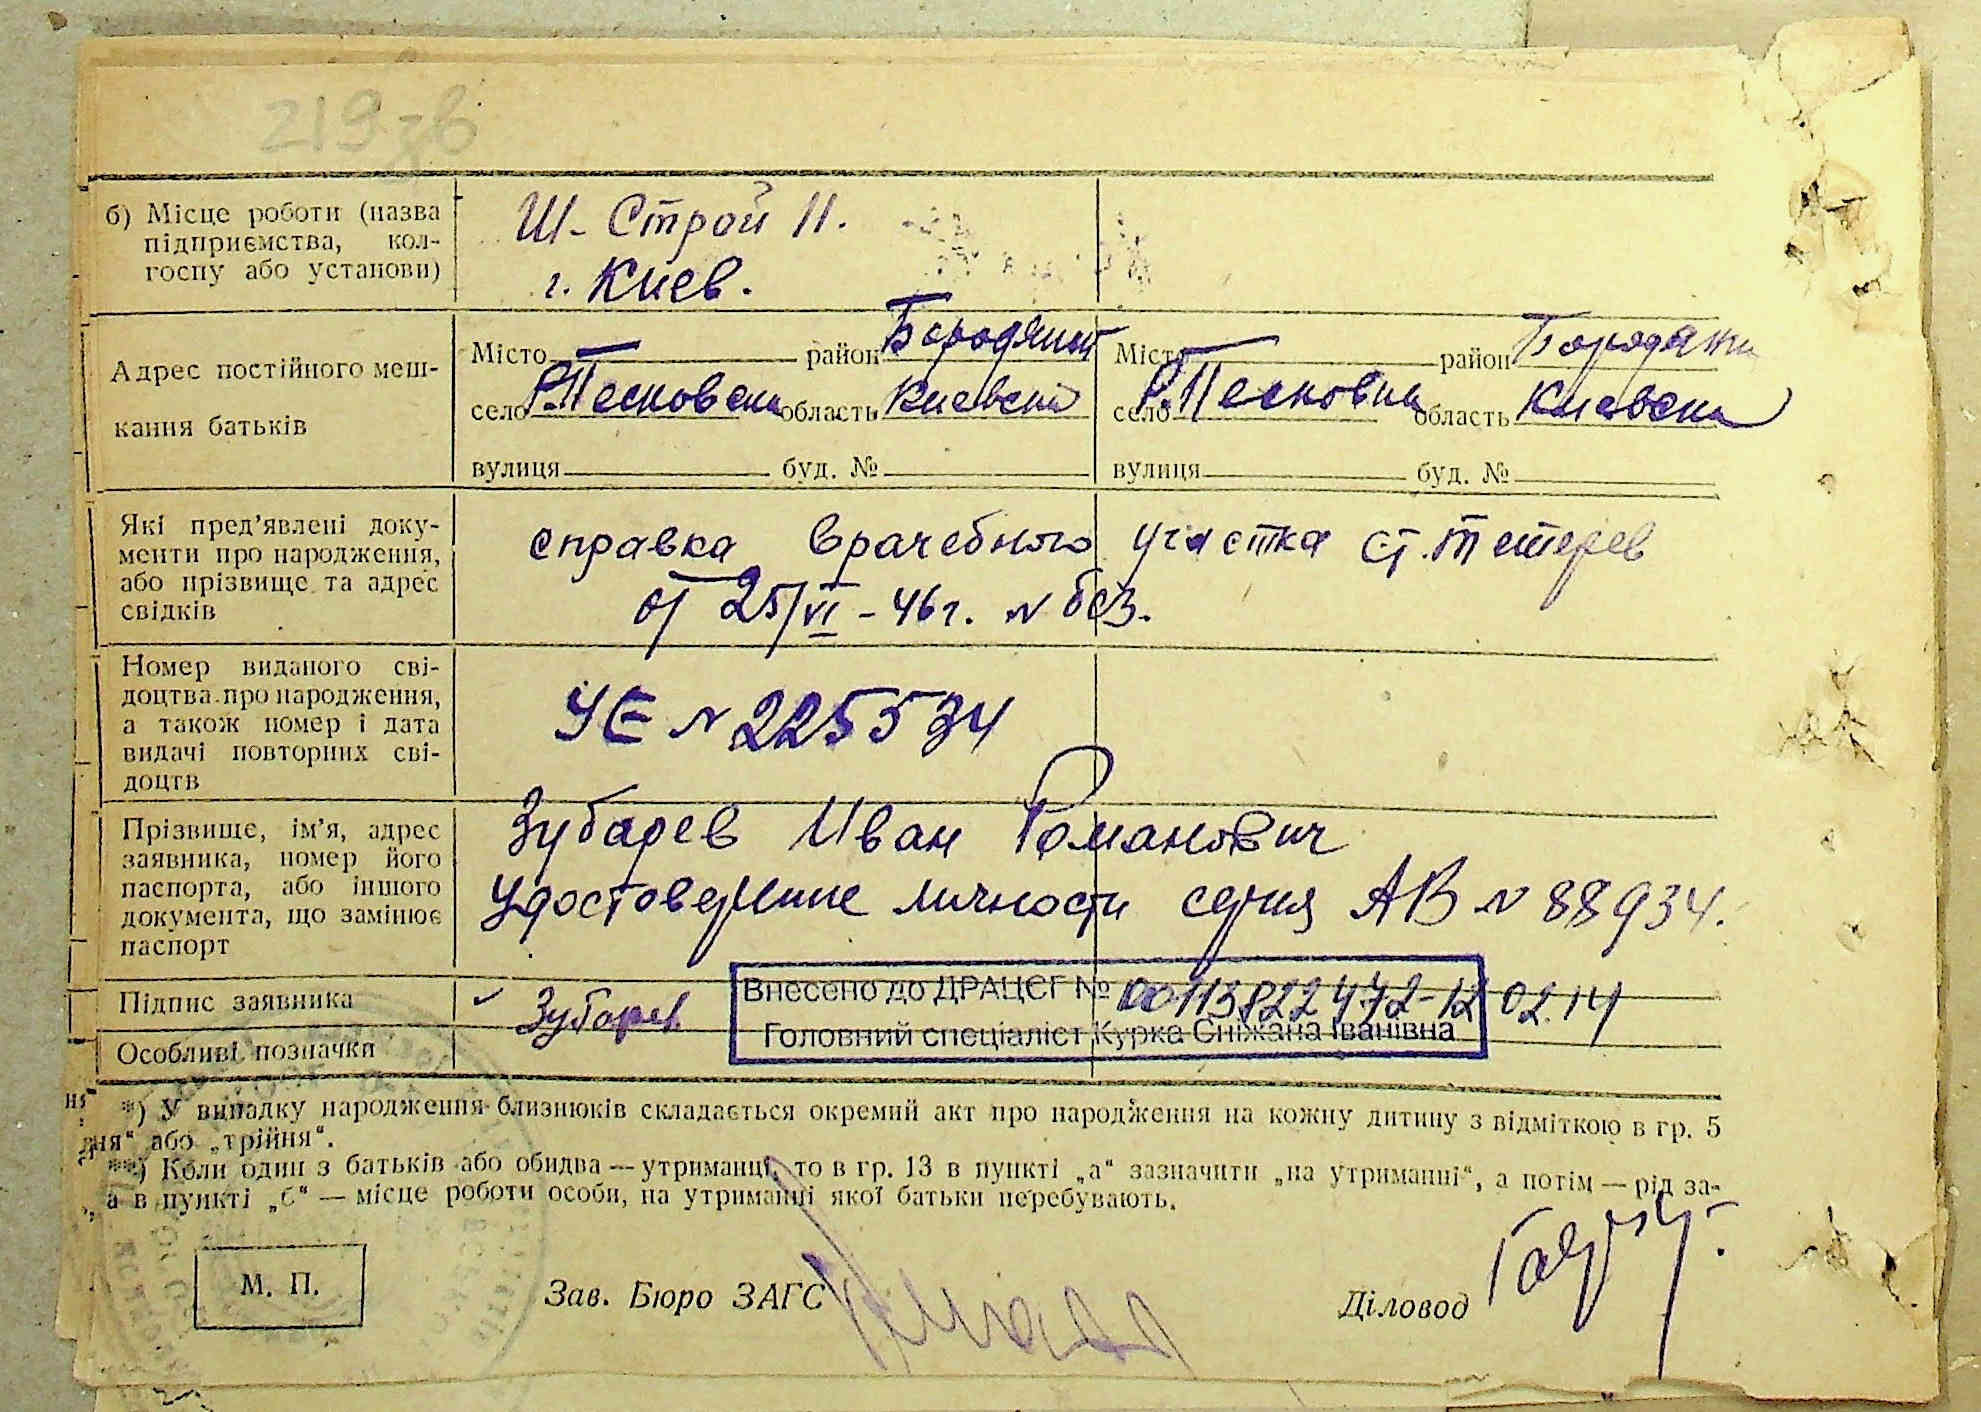 219зв
б) Місце роботи (назва
підприємства, кол-
госпу або установи)
Ш-Строй 11.
г. Киев.
Адрес постійного меш-
кання батьків
Місто район Бородянск
село Р.Песковска область Киевска
вулиця буд. №
Місто район Бородянск
село Р.Песковка область Киевска
вулиця буд. №
Які пред’явлені доку-
менти про народження,
або прізвище та адрес
свідків
справка врачебного участка ст. Тетерев
от 25/VI - 46 г. N без.
Номер виданого сві-
доцтва про народження,
а також номер і дата
видачі повторних сві-
доцтв
УЕ N 225534
Прізвище, ім’я, адрес
заявника, номер його
паспорта, або іншого
документа, що замінює
паспорт
Зубарев Иван Романович
удостоверение личности серия АВ N 88934.
Підпис заявника
Зубарев
Внесено до ДРАЦСГ № 00113822472-12 02.14
Головний спеціаліст Курка Сніжана Іванівна
Особливі позначки
*) У випадку народження близнюків складається окремий акт про народження на кожну дитину з відміткою в гр. 5
ня“ або „трійня“.
**) Коли один з батьків або обидва — утриманці, то в гр. 13 в пункті „а“ зазначити „на утриманні“, а потім — рід за-
, а в пункті „б“ — місце роботи особи, на утриманні якої батьки перебувають.
М. П.
Зав. Бюро ЗАГС
Діловод